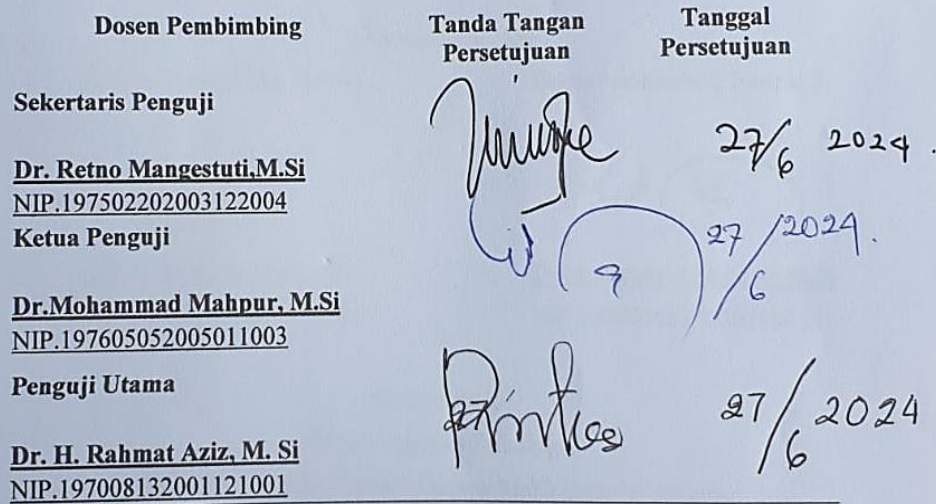 Dosen Pembimbing
Tanda Tangan
Persetujuan
Tanggal
Persetujuan
Sekertaris Penguji
27/6 2024.
Dr. Retno Mangestuti,M.Si
NIP.197502202003122004
Ketua Penguji
27/6/2024.
Dr.Mohammad Mahpur, M.Si
NIP.197605052005011003
Penguji Utama
27/6 2024
Dr. H. Rahmat Aziz, M. Si
NIP.197008132001121001